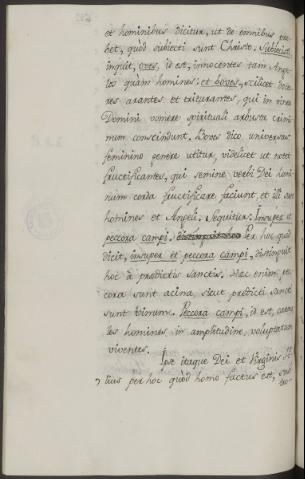 et hominibus dicitur, ut de omnibus pro-
bet, quòd subjecti sunt Christo. Subjecisti
inquit, oves, id est, innocentes tam Ange-
los quàm homines: et boves, scilicet docto
res arantes et triturantes, qui in
Domini vomere spirituali arbusta crimi
num conscindunt. Boves dico universas
feminino genere utitur, videlicet ut notet
fructificantes, qui semine verbi Dei homi
num corda fructificare faciunt, et illi sunt
homines et Angeli. Sequitur: Insuper et
peccora campi. Per hoc quod
dicit, insuper et peccora campi, distinguit
hoc à predictis sanctis. Haec enim pec
cora sunt acina, sicut predicti sancti
sunt vinum. Peccora campi, id est, carna
les homines in amplitudine voluptatum
viventes.
Ipse itaque Dei et Virginis Fi
lius per hoc quòd homo factus est,